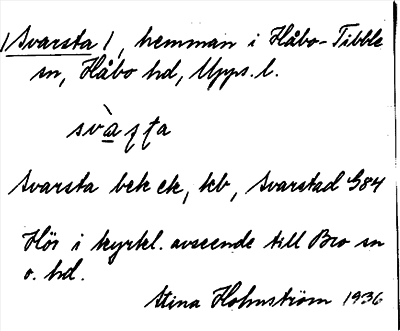 /Svarsta/, hemman i Håbo-Tibble
sn, Håbo hd, Upps. l.
svàsta
Svarsta bek ek, kb, Svarstad G84
Hör i kyrkl. avseende till Bro sn
o. hd.
Stina Holmström 1936